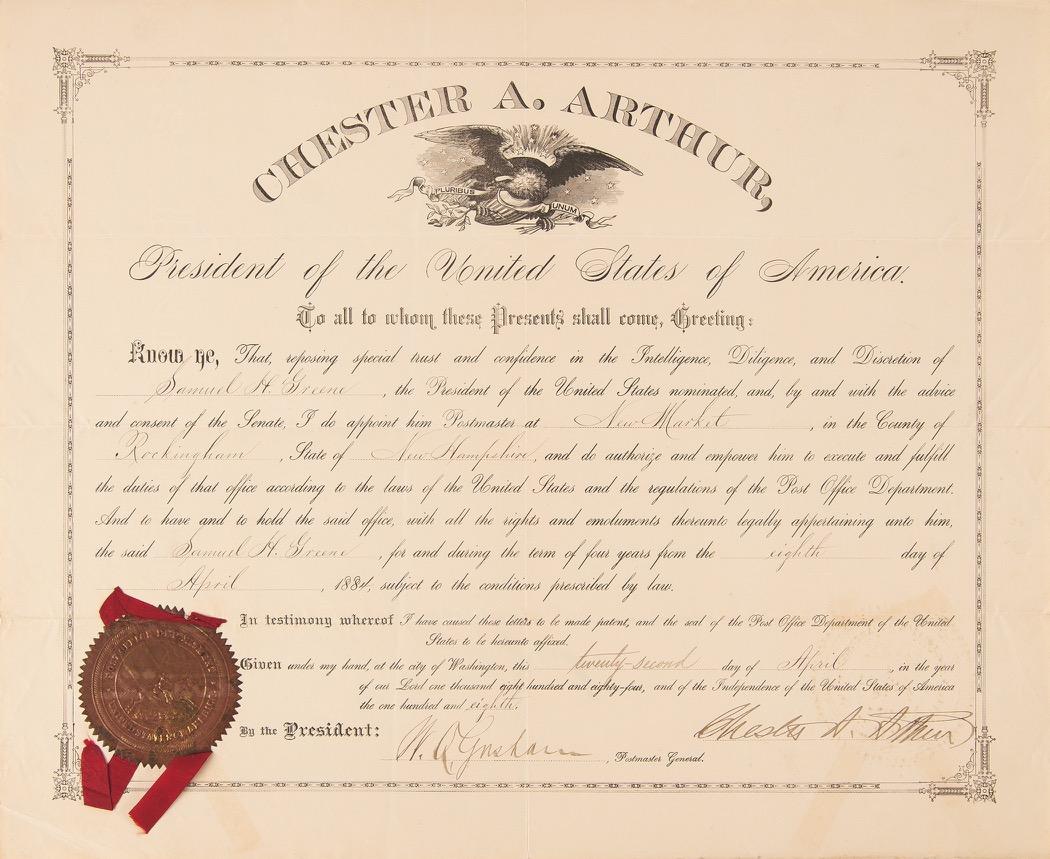 CHESTER A. ARTHUR,
PLURIBUS UNUM
President of the United States of America.
To all to whom these Presents shall come, Greeting:
Know ye, That, reposing special trust and confidence in the Intelligence, Diligence, and Discretion of
Samuel H. Greene, the President of the United States nominated, and, by and with the advice
and consent of the Senate, I do appoint him Postmaster at New Market, in the County of
Rockingham, State of New Hampshire, and do authorize and empower him to execute and fulfill
the duties of that office according to the laws of the United States and the regulations of the Post Office Department.
And to have and to hold the said office, with all the rights and emoluments thereunto legally appertaining unto him,
the said Samuel H. Greene, for and during the term of four years from the eighth day of
April, 1884, subject to the conditions prescribed by law.
In testimony whereof I have caused these letters to be made patent, and the seal of the Post Office Department of the United
States to be hereunto affixed.
Given under my hand, at the city of Washington, this twenty-second day of April, in the year
of our Lord one thousand eight hundred and eighty-four, and of the Independence of the United States of America
the one hundred and eighth.
By the President:
Chester A. Arthur
W. Q. Gresham, Postmaster General.